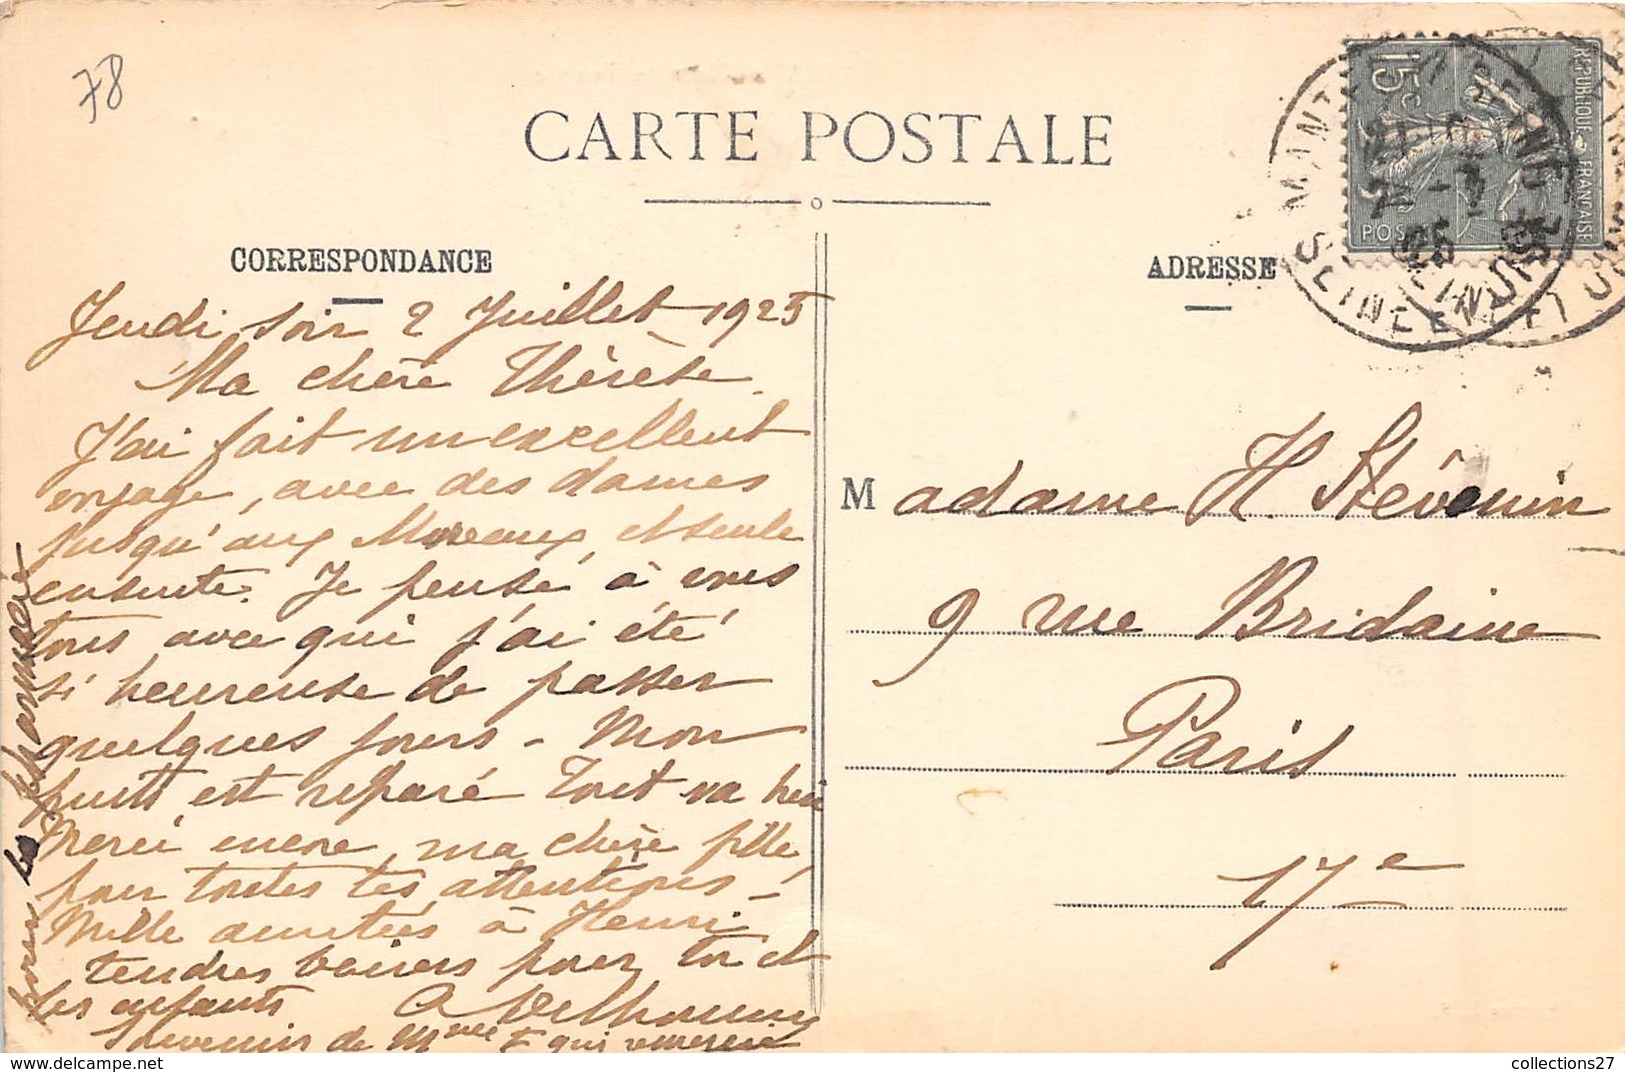 78
CARTE POSTALE
CORRESPONDANCE
ADRESSE
RÉPUBLIQUE FRANÇAISE
15c
POS
SEINE ET
Jeudi soir 2 Juillet 1925
Ma chère Thérèse
J'ai fait un excellent
voyage, avec des dames
jusqu'aux Mureaux, et seule
ensuite. Je pense à vous
tous avec qui j'ai été
si heureuse de passer
quelques jours - Mon
puits est réparé Tout va bien
Merci encore, ma chère fille,
pour toutes tes attentions -
Mille amitiés à Henri
tendres baisers pour toi et
les enfants
Souvenir de Mme qui remercie
pour la pharmacie
Madame H. Stévenin
9 rue Bridaine
Paris
17e
collections27